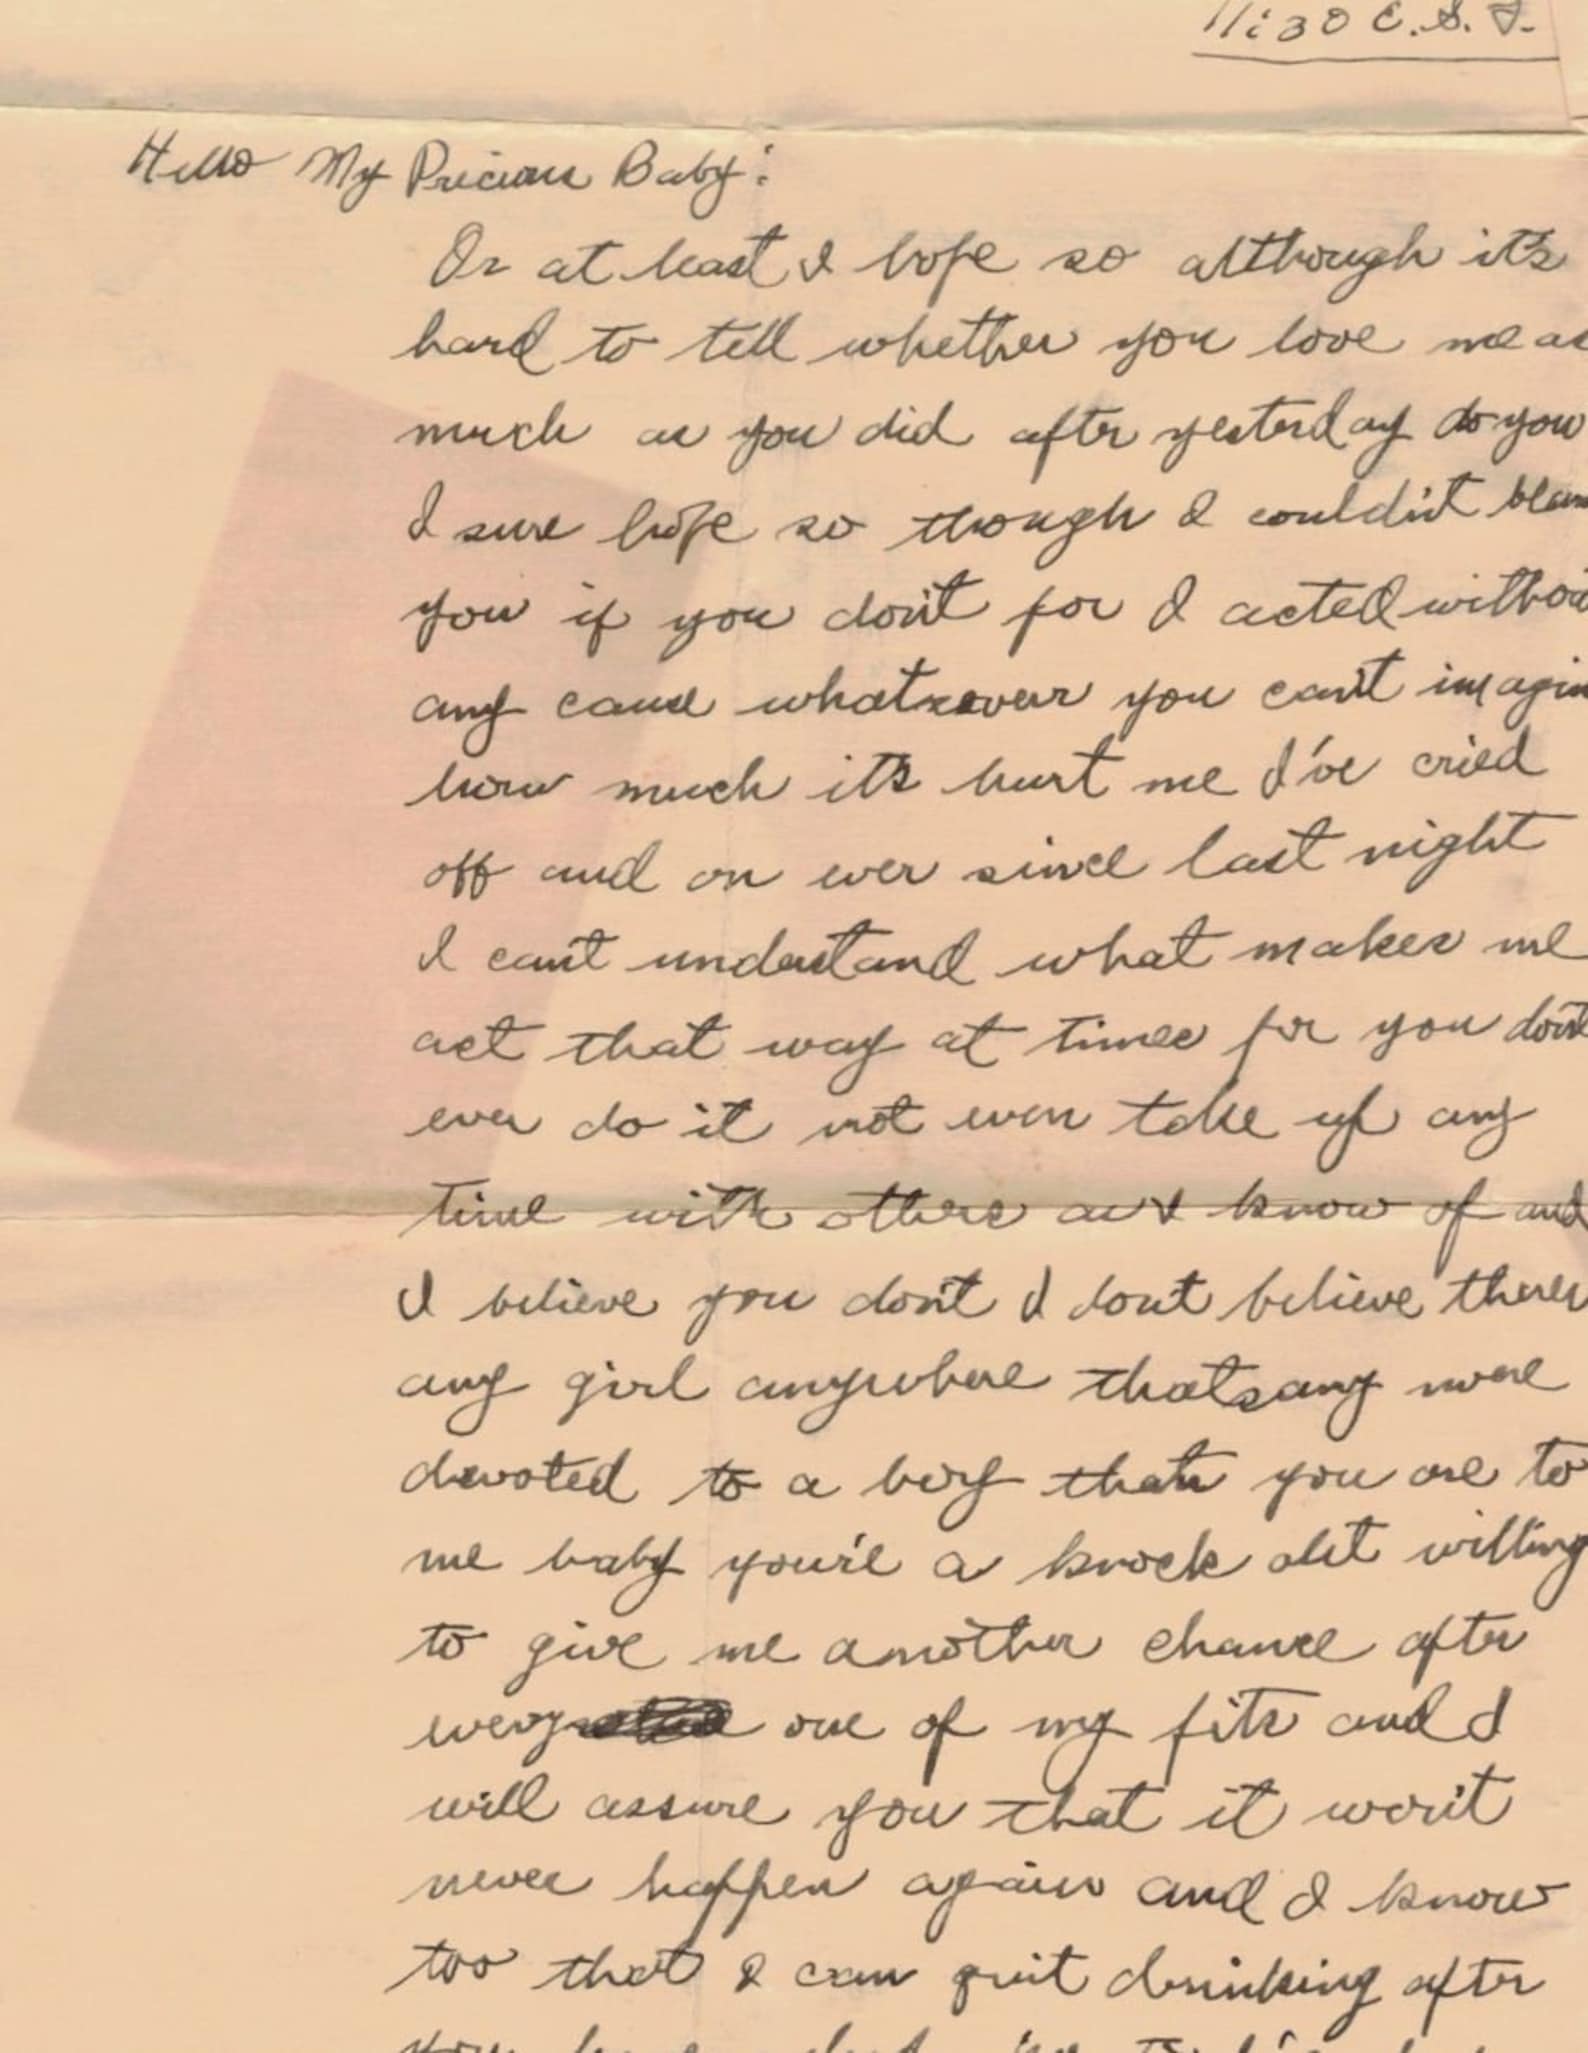 11:30 C.S.T.
Hello My Precious Baby:
Or at least I hope so although it's
hard to tell whether you love me as
much as you did after yesterday do you
I sure hope so though I couldn't blam
you if you don't for I acted withou
any cause whatsoever you can't imagin
how much it's hurt me I've cried
off and on ever since last night
I can't understand what makes me
act that way at times for you don't
ever do it not even take up any
time with others as I know of and
I believe you don't I don't believe theres
any girl anywhere thats any more
devoted to a boy than you are to
me baby you're a knock out willing
to give me another chance after
every one of my fits and I
will assure you that it won't
never happen again and I know
too that I can quit drinking after